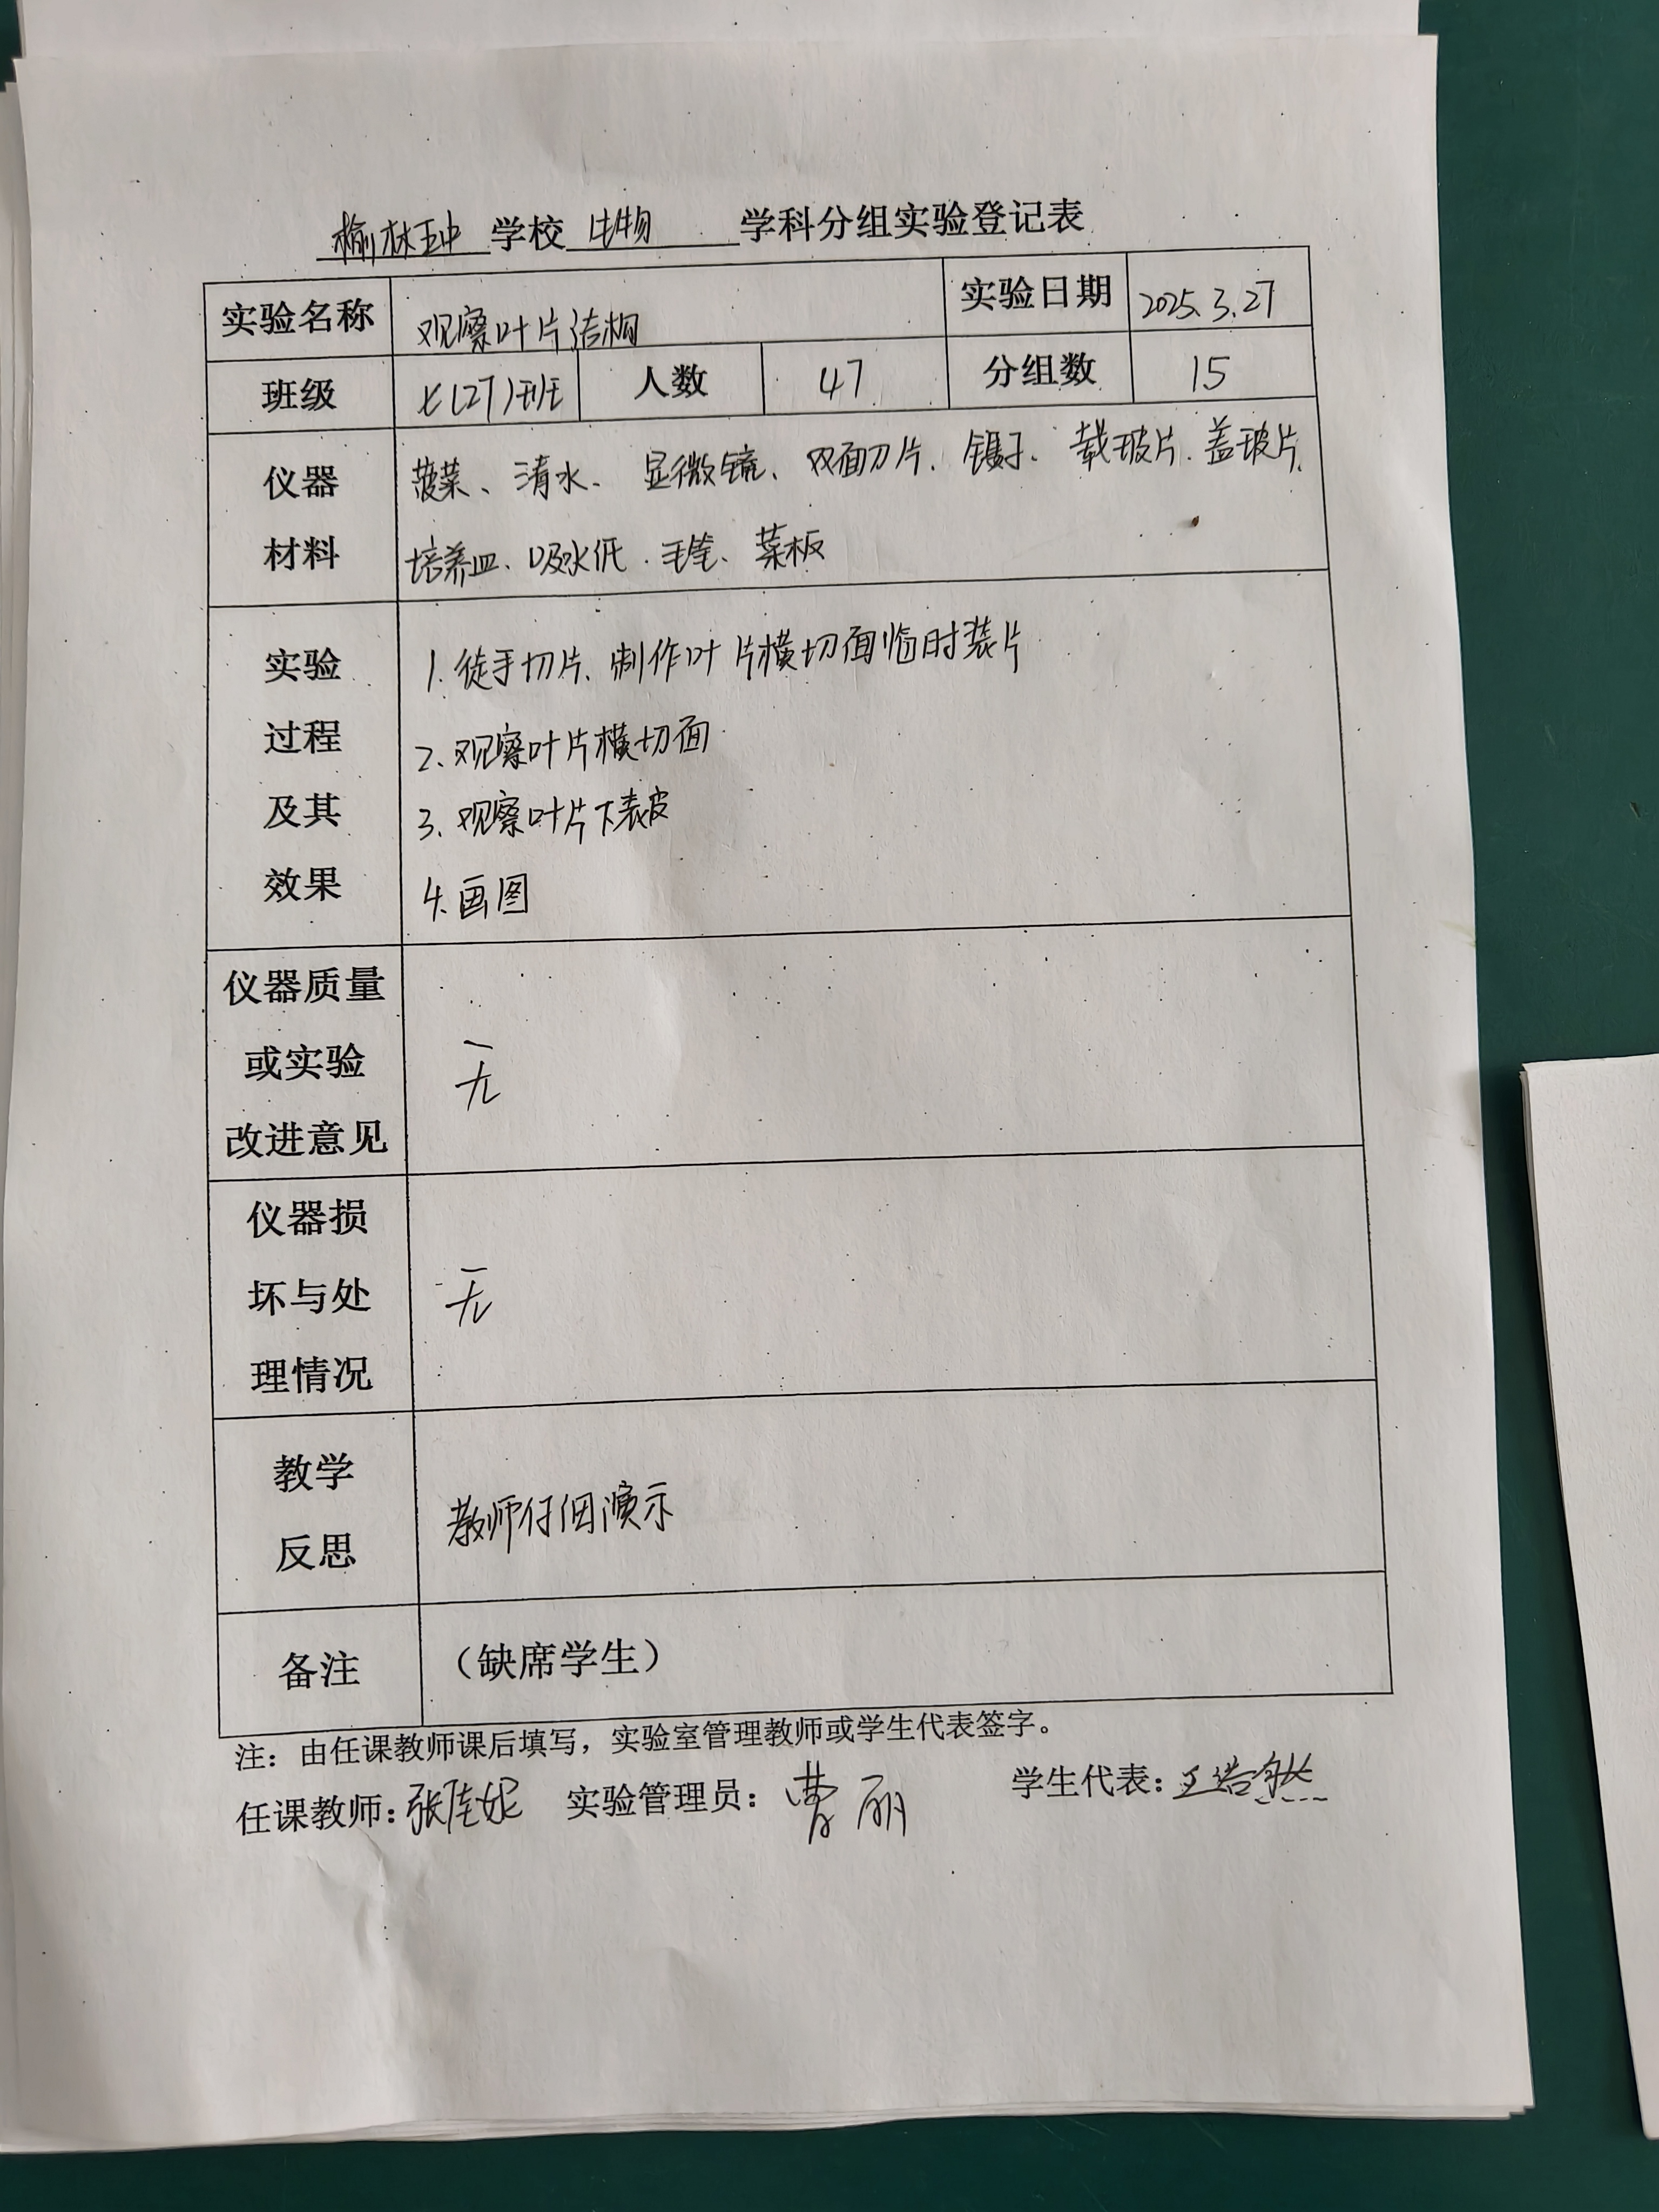 榆林五中学校生物学科分组实验登记表
实验名称 观察叶片结构 实验日期 2025.3.27
班级 七(27)班 人数 47 分组数 15
仪器 菠菜、清水、显微镜、双面刀片、镊子、载玻片、盖玻片、
材料 培养皿、吸水纸、毛笔、菜板
实验 1.徒手切片、制作叶片横切面临时装片
过程 2、观察叶片横切面
及其 3、观察叶片下表皮
效果 4.画图
仪器质量
或实验 无
改进意见
仪器损
坏与处 无
理情况
教学
反思 教师仔细演示
备注 (缺席学生)
注：由任课教师课后填写，实验室管理教师或学生代表签字。
任课教师：张佳妮 实验管理员：曹丽 学生代表：王浩